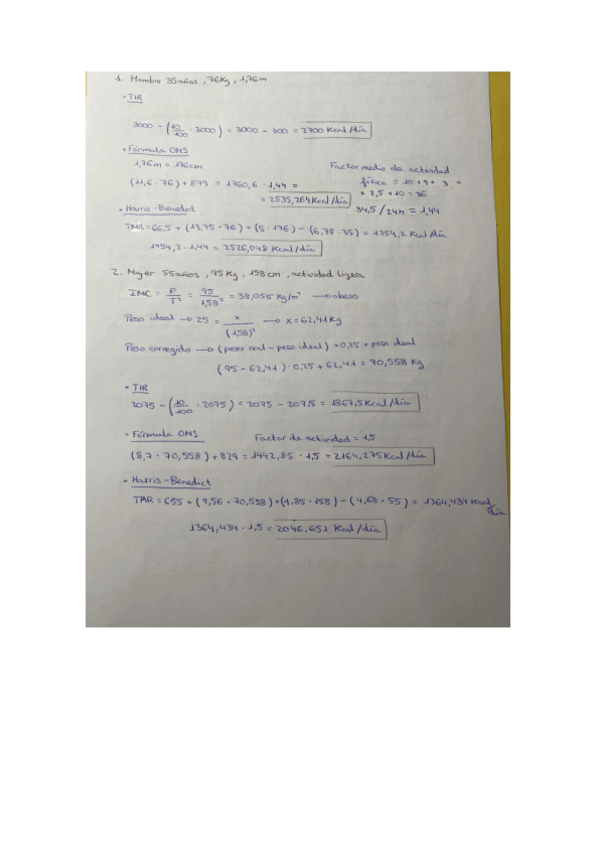 1. Hombre 35 años, 76Kg, 1,76m
• TIR
3000 - (10/100 · 3000) = 3000 - 300 = 2700 Kcal/día
• Fórmula OMS
1,76m = 176cm
Factor medio de actividad
(11,6 · 76) + 879 = 1760,6 · 1,44 =
física = 10 + 9 + 3 +
+ 2,5 + 10 = 36
= 2535,264 Kcal/día
34,5/24h = 1,44
• Harris-Benedict
TMR = 66,5 + (13,75 · 76) + (5 · 176) - (6,78 · 35) = 1754,2 Kcal/día
1754,2 · 1,44 = 2526,048 Kcal/día
2. Mujer 55 años, 95Kg, 158cm, actividad ligera
IMC = P/T² = 95/1,58² = 38,055 Kg/m² → obeso
Peso ideal → 25 = x/(1,58)² → x = 62,41Kg
Peso corregido → (peso real - peso ideal) · 0,25 + peso ideal
(95 - 62,41) · 0,25 + 62,41 = 70,558 Kg
• TIR
2075 - (10/100 · 2075) = 2075 - 207,5 = 1867,5 Kcal/día
• Fórmula OMS
Factor de actividad = 1,5
(8,7 · 70,558) + 829 = 1442,85 · 1,5 = 2164,275 Kcal/día
• Harris-Benedict
TMR = 655 + (9,56 · 70,558) + (1,85 · 158) - (4,68 · 55) = 1364,434 Kcal/día
1364,434 · 1,5 = 2046,651 Kcal/día